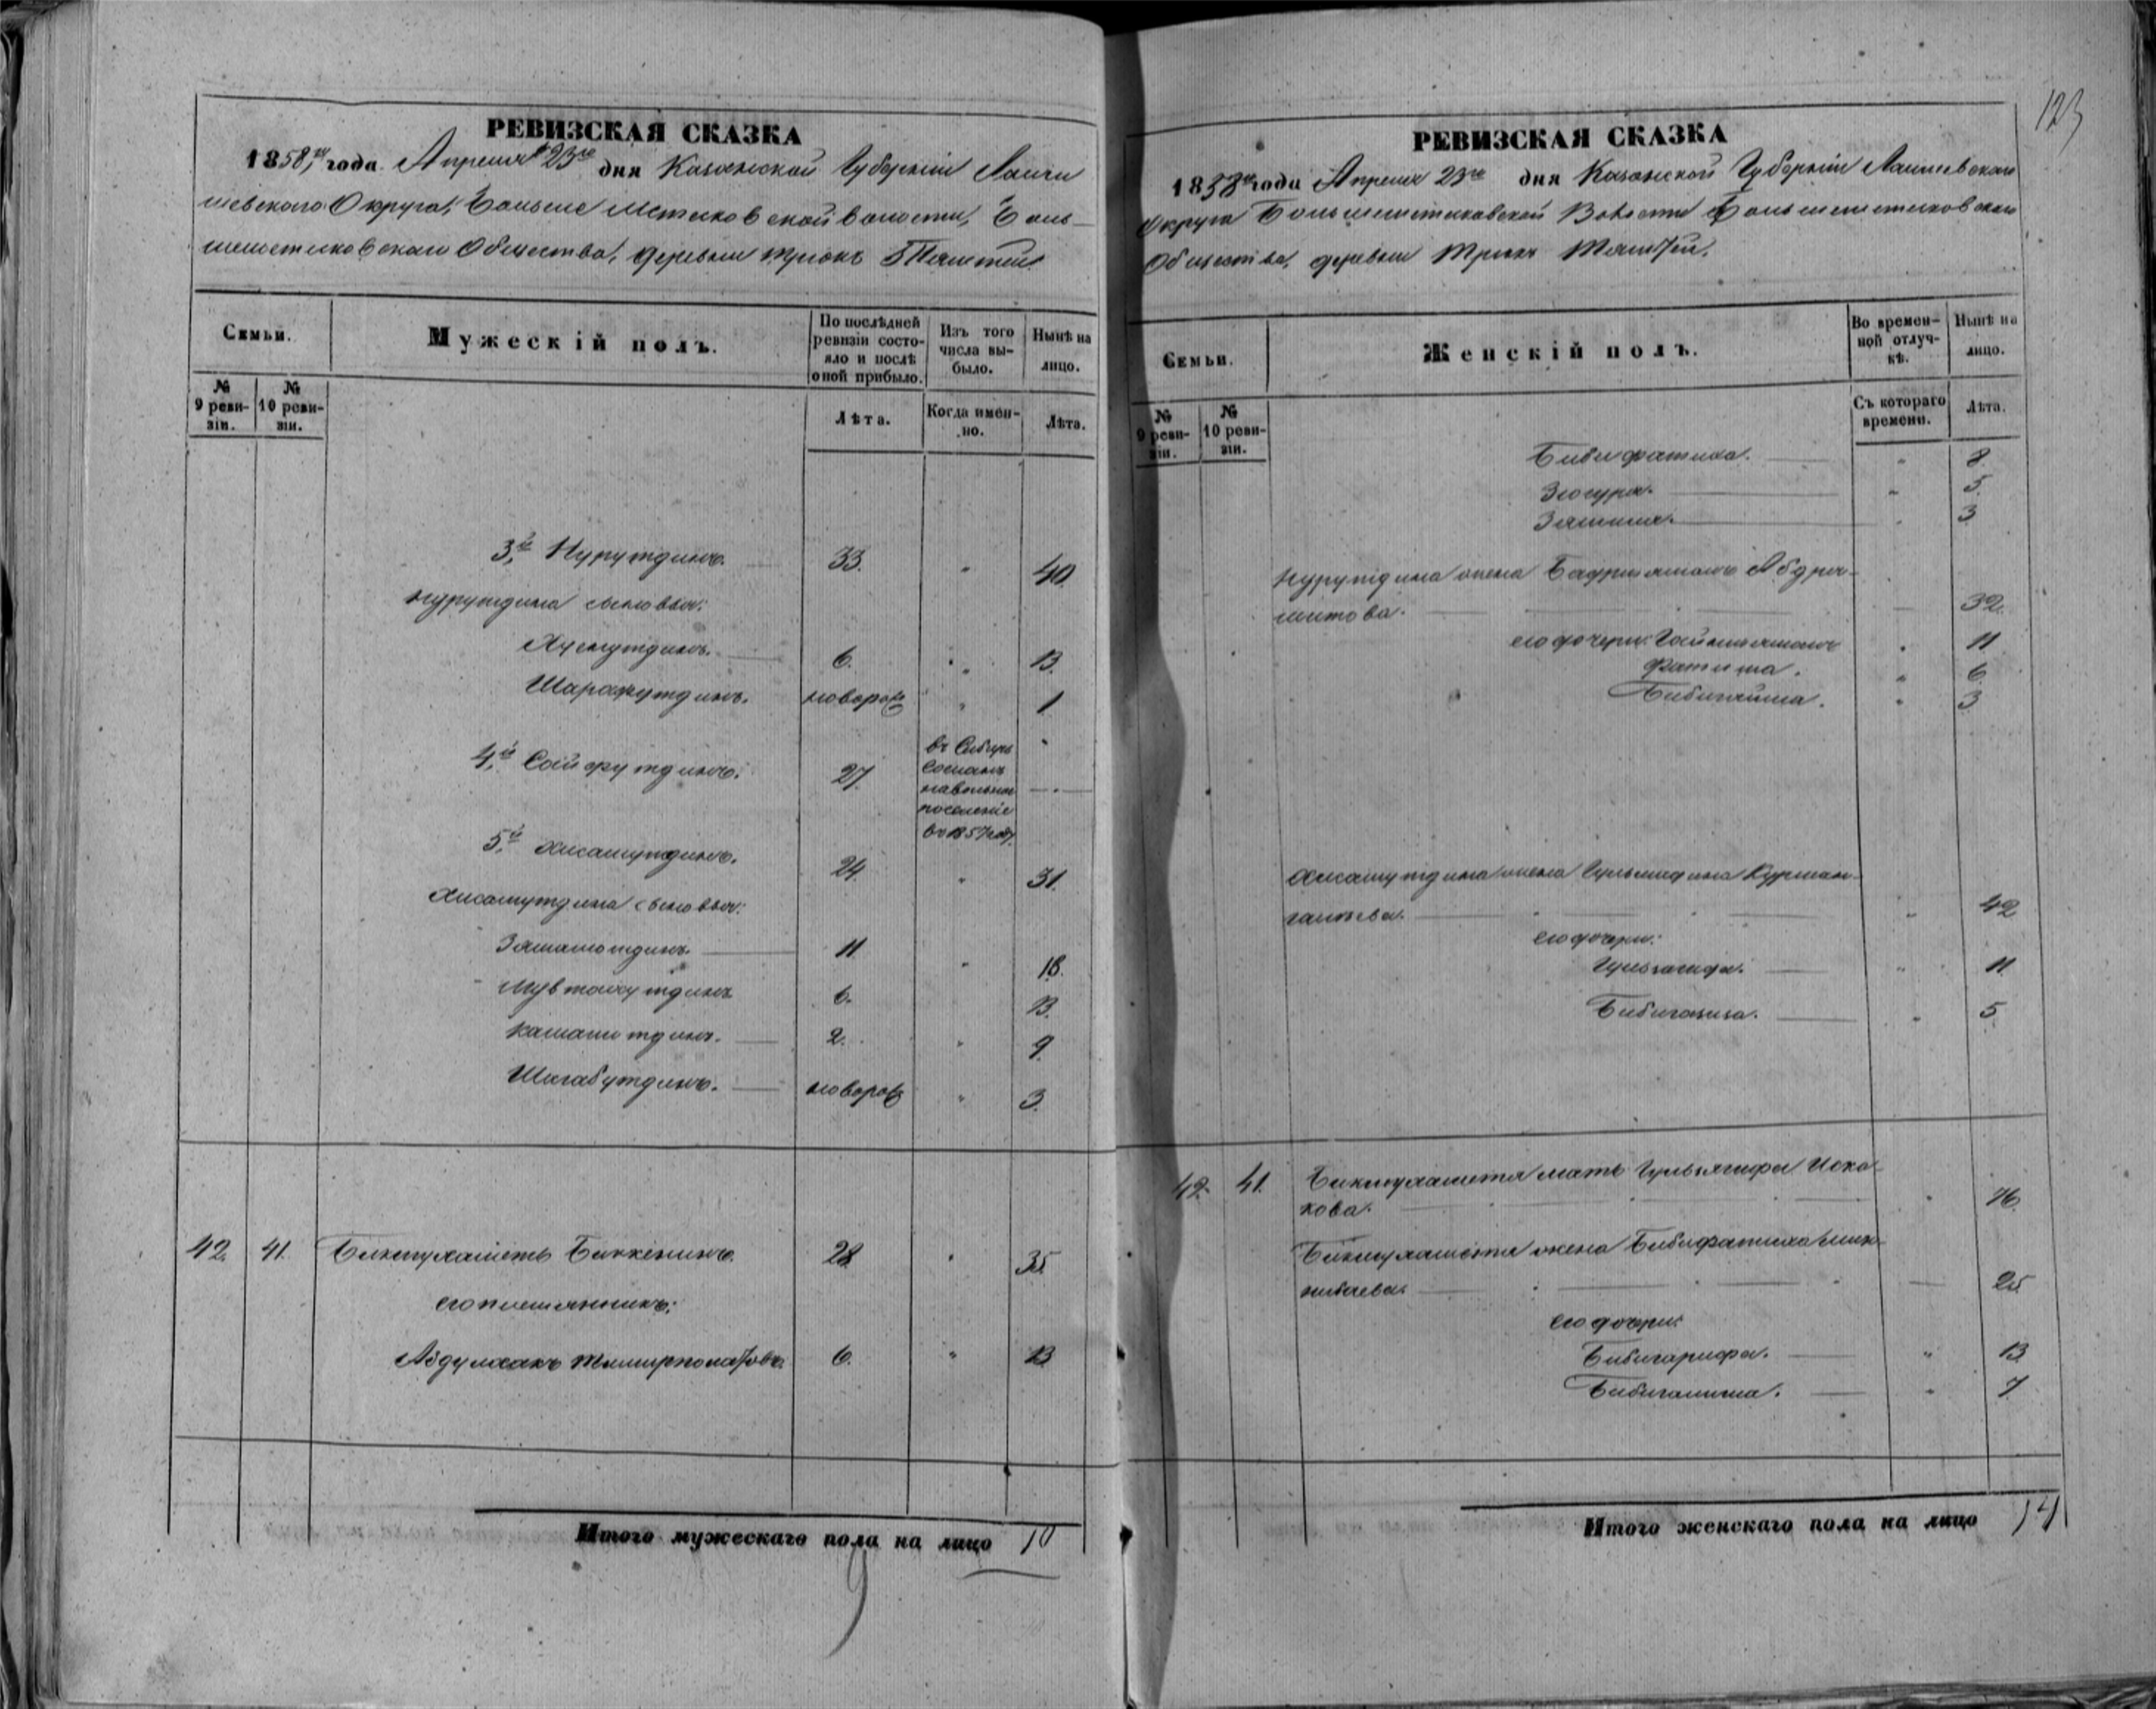 РЕВИЗСКАЯ СКАЗКА
1858го года Апреля 23го дня Казанской Губернiи Лаиш
шевскаго Округа, Больше Метесковской волости, Боль-
шеметесковскаго Общества, деревни Трюкъ Тямтей
Семьи.
Мужескiй полъ.
По послѣдней ревизiи состояло и послѣ оной прибыло.
Изъ того числа выбыло.
Нынѣ на лицо.
№ 9 ревизiи.
№ 10 ревизiи.
Лѣта.
Когда имен-но.
Лѣта.
3й Нурутдинъ. 33. " 40.
Нурутдина сыновья:
Хузмутдинъ. 6. " 13.
Шарафутдинъ. новорож " 1
4й Сайфутдинъ. 27.
въ Сибирь
сосланъ
на вольное
поселенiе
въ 1857 году.
5й Хисамутдинъ. 24. " 31.
Хисамутдина сыновья:
Замалютдинъ. 11 " 18.
Мувтахутдинъ 6. 13.
Камалитдинъ. 2. " 9.
Шигабутдинъ. новорож " 3.
42. 41. Бикмухаметь Биккенинъ. 28. " 35.
его племянникъ:
Абдулхакъ Тимирполатовъ. 6. " 13
Итого мужескаго пола на лицо 10
9
123
РЕВИЗСКАЯ СКАЗКА
1858го года Апреля 23го дня Казанской Губернiи Лаишевскаго
Округа Большеметесковской Волости Большеметесковскаго
Общества, деревни Трюкъ Тямтей.
Семьи.
Женскiй полъ.
Во времен-ной отлуч-кѣ.
Нынѣ на лицо.
№ 9 реви-зiи.
№ 10 реви-зiи.
Съ котораго времени.
Лѣта.
Бибифатиха. " 8.
Зюгура. " 5.
Замиля. " 3
Нурутдина жена Бадриямалъ Абдра-
шитова. 32.
его дочери: Гайниямалъ " 11
Фатима. " 6
Бибигайша. " 3
Хисамутдина жена Гульмадина Курман-
галиева. " 42
его дочери:
Гульзагида. " 11
Бибигазиза. " 5.
42. 41. Бикмухаметя мать Гульзягифа Исха-
кова. " 76.
Бикмухаметя жена Бибифатиха Мин-
нибаева. 25
его дочери:
Бибигарифа. " 13
Бибигалима. " 7.
Итого женскаго пола на лицо 14